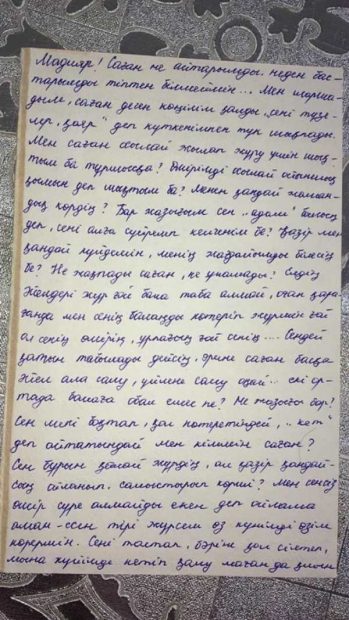 Мадияр! Саған не айтарымды, неден бас-
тарымды тіптен білмеймін... Мен шарша-
дым, саған деген көңілім қалды, „сені түзе-
лер, қояр" деп күткенімнен түк шықпады.
Мен саған осылай жылап жүру үшін шық-
тым ба тұрмысқа? Өмірімді осылай
қылмын деп шықтым ба? Менен қандай жаман-
дық көрдің? Бар жазығым сол „адал" болсын
деп, сені алға сүйреп келгенім бе? Қазір мен
қандай күйдемін, менің жағдайымды білесің
бе? Не жақпады саған, не ұнамады? Елдің
әйелдері жүр ғой бала таба алмай, оған қара-
ғанда мен сенің балаңды көтеріп жүрмін ғой
ол сенің өмірің, ұрпағың ғой сенің.... Сендей
қатын табылады дейсің, әрине саған басқа
әйел ала салу, үйлене салу оңай... екі ор-
тада балаға обал емес пе? Не жазығы бар!
Сен мені боқтап, қол көтеретіндей, „кет"
деп айтатындай мен кіммін саған?
Сен бұрын қалай жүрдің, ал қазір қандай-
сың ойланып, салыстырып көрші? Мен сенсіз
өмір сүре алмайды екен деп ойлама
аман-есен тірі жүрсем өз күнімді өзім
көрермін. Сені тастап, бәріне қол сілтеп,
мына күйімде кетіп қалу маған да қиын